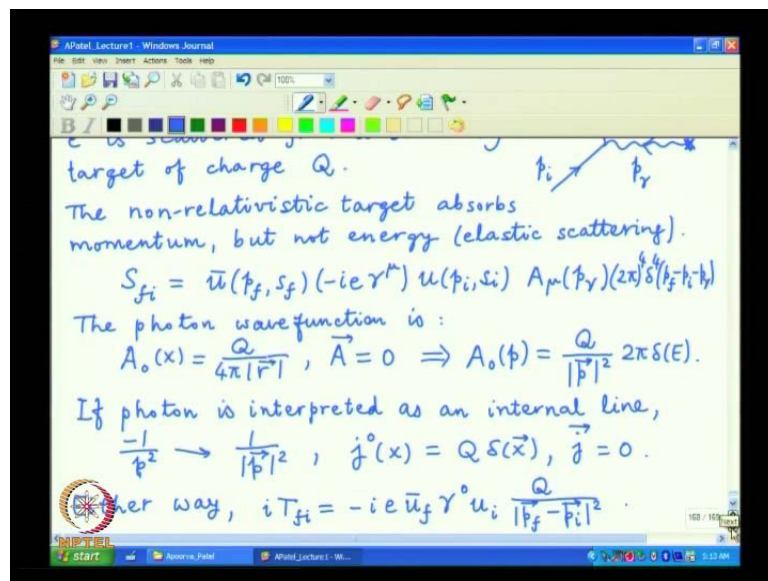 APatel_Lecture1 - Windows Journal
File Edit View Insert Actions Tools Help
100%
B I
target of charge Q.
p_i p_γ
The non-relativistic target absorbs
momentum, but not energy (elastic scattering).
S_fi = ū(p_f, s_f) (-ieγ^μ) u(p_i, s_i) A_μ(p_γ) (2π)^4 δ^4(p_f-p_i-p_γ)
The photon wavefunction is :
A_0(x) = Q/4π|r⃗| , A⃗ = 0 ⇒ A_0(p) = Q/|p⃗|^2 2πδ(E).
If photon is interpreted as an internal line,
-1/p^2 → 1/|p⃗|^2 , j^0(x) = Q δ(x⃗), j⃗ = 0 .
Either way, i T_fi = -i e ū_f γ^0 u_i Q/|p⃗_f - p⃗_i|^2 .
168 / 169
Next
NPTEL
start Apoorva_Patel APatel_Lecture1 - Wi... 5:13 AM